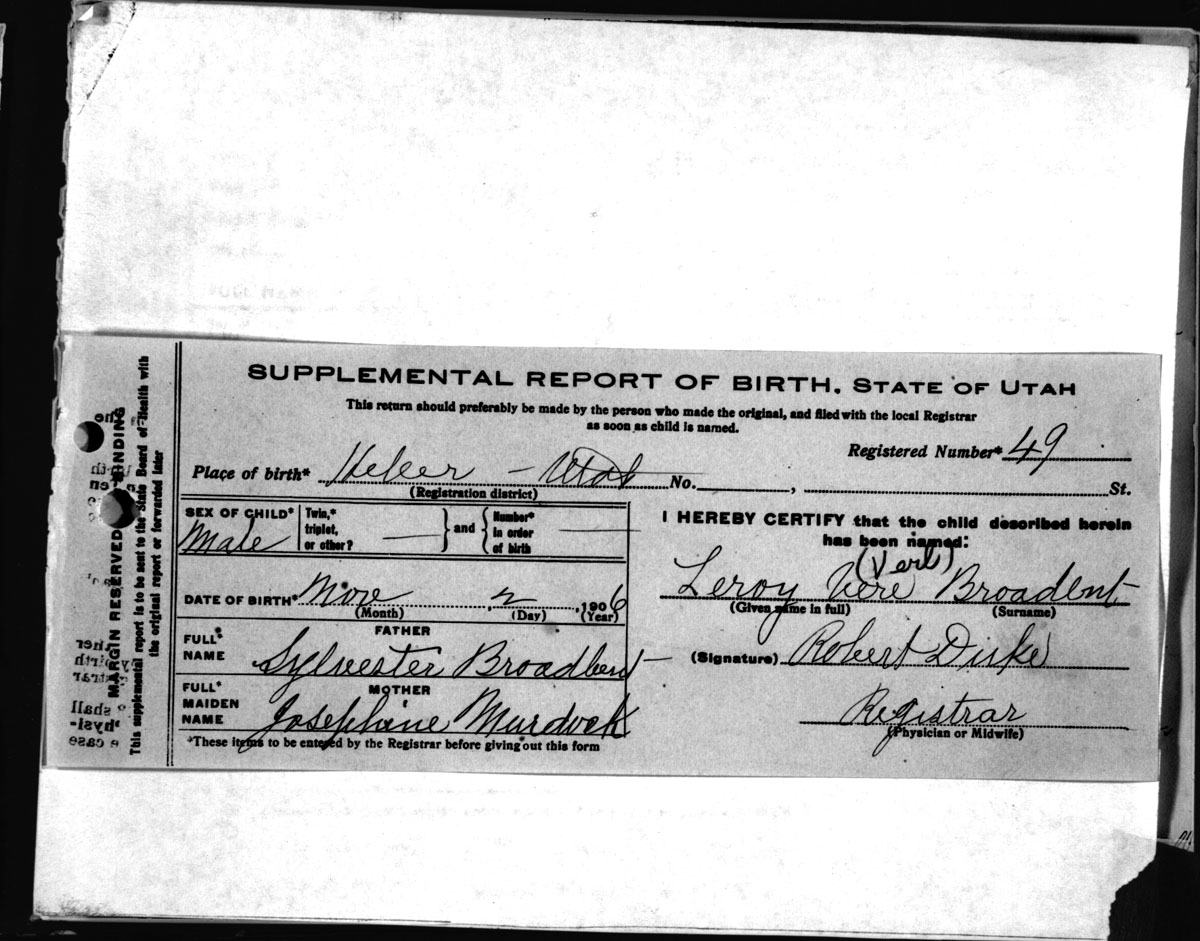 SUPPLEMENTAL REPORT OF BIRTH, STATE OF UTAH
This return should preferably be made by the person who made the original, and filed with the local Registrar
as soon as child is named.
Registered Number* 49
Place of birth* Heber - Utah No. , St.
(Registration district)
SEX OF CHILD* Male
Twin,* triplet, or other? — and Number* in order of birth —
DATE OF BIRTH* Nove 2, 1906
(Month) (Day) (Year)
FATHER
FULL* NAME Sylvester Broadbent
MOTHER
FULL* MAIDEN NAME Josephine Murdock
*These items to be entered by the Registrar before giving out this form
I HEREBY CERTIFY that the child described herein
has been named:
(Verl)
Leroy Vere Broadent
(Given name in full) (Surname)
(Signature) Robert Duke
Registrar
(Physician or Midwife)
MARGIN RESERVED BINDING
This supplemental report is to be sent to the State Board of Health with
the original report or forwarded later